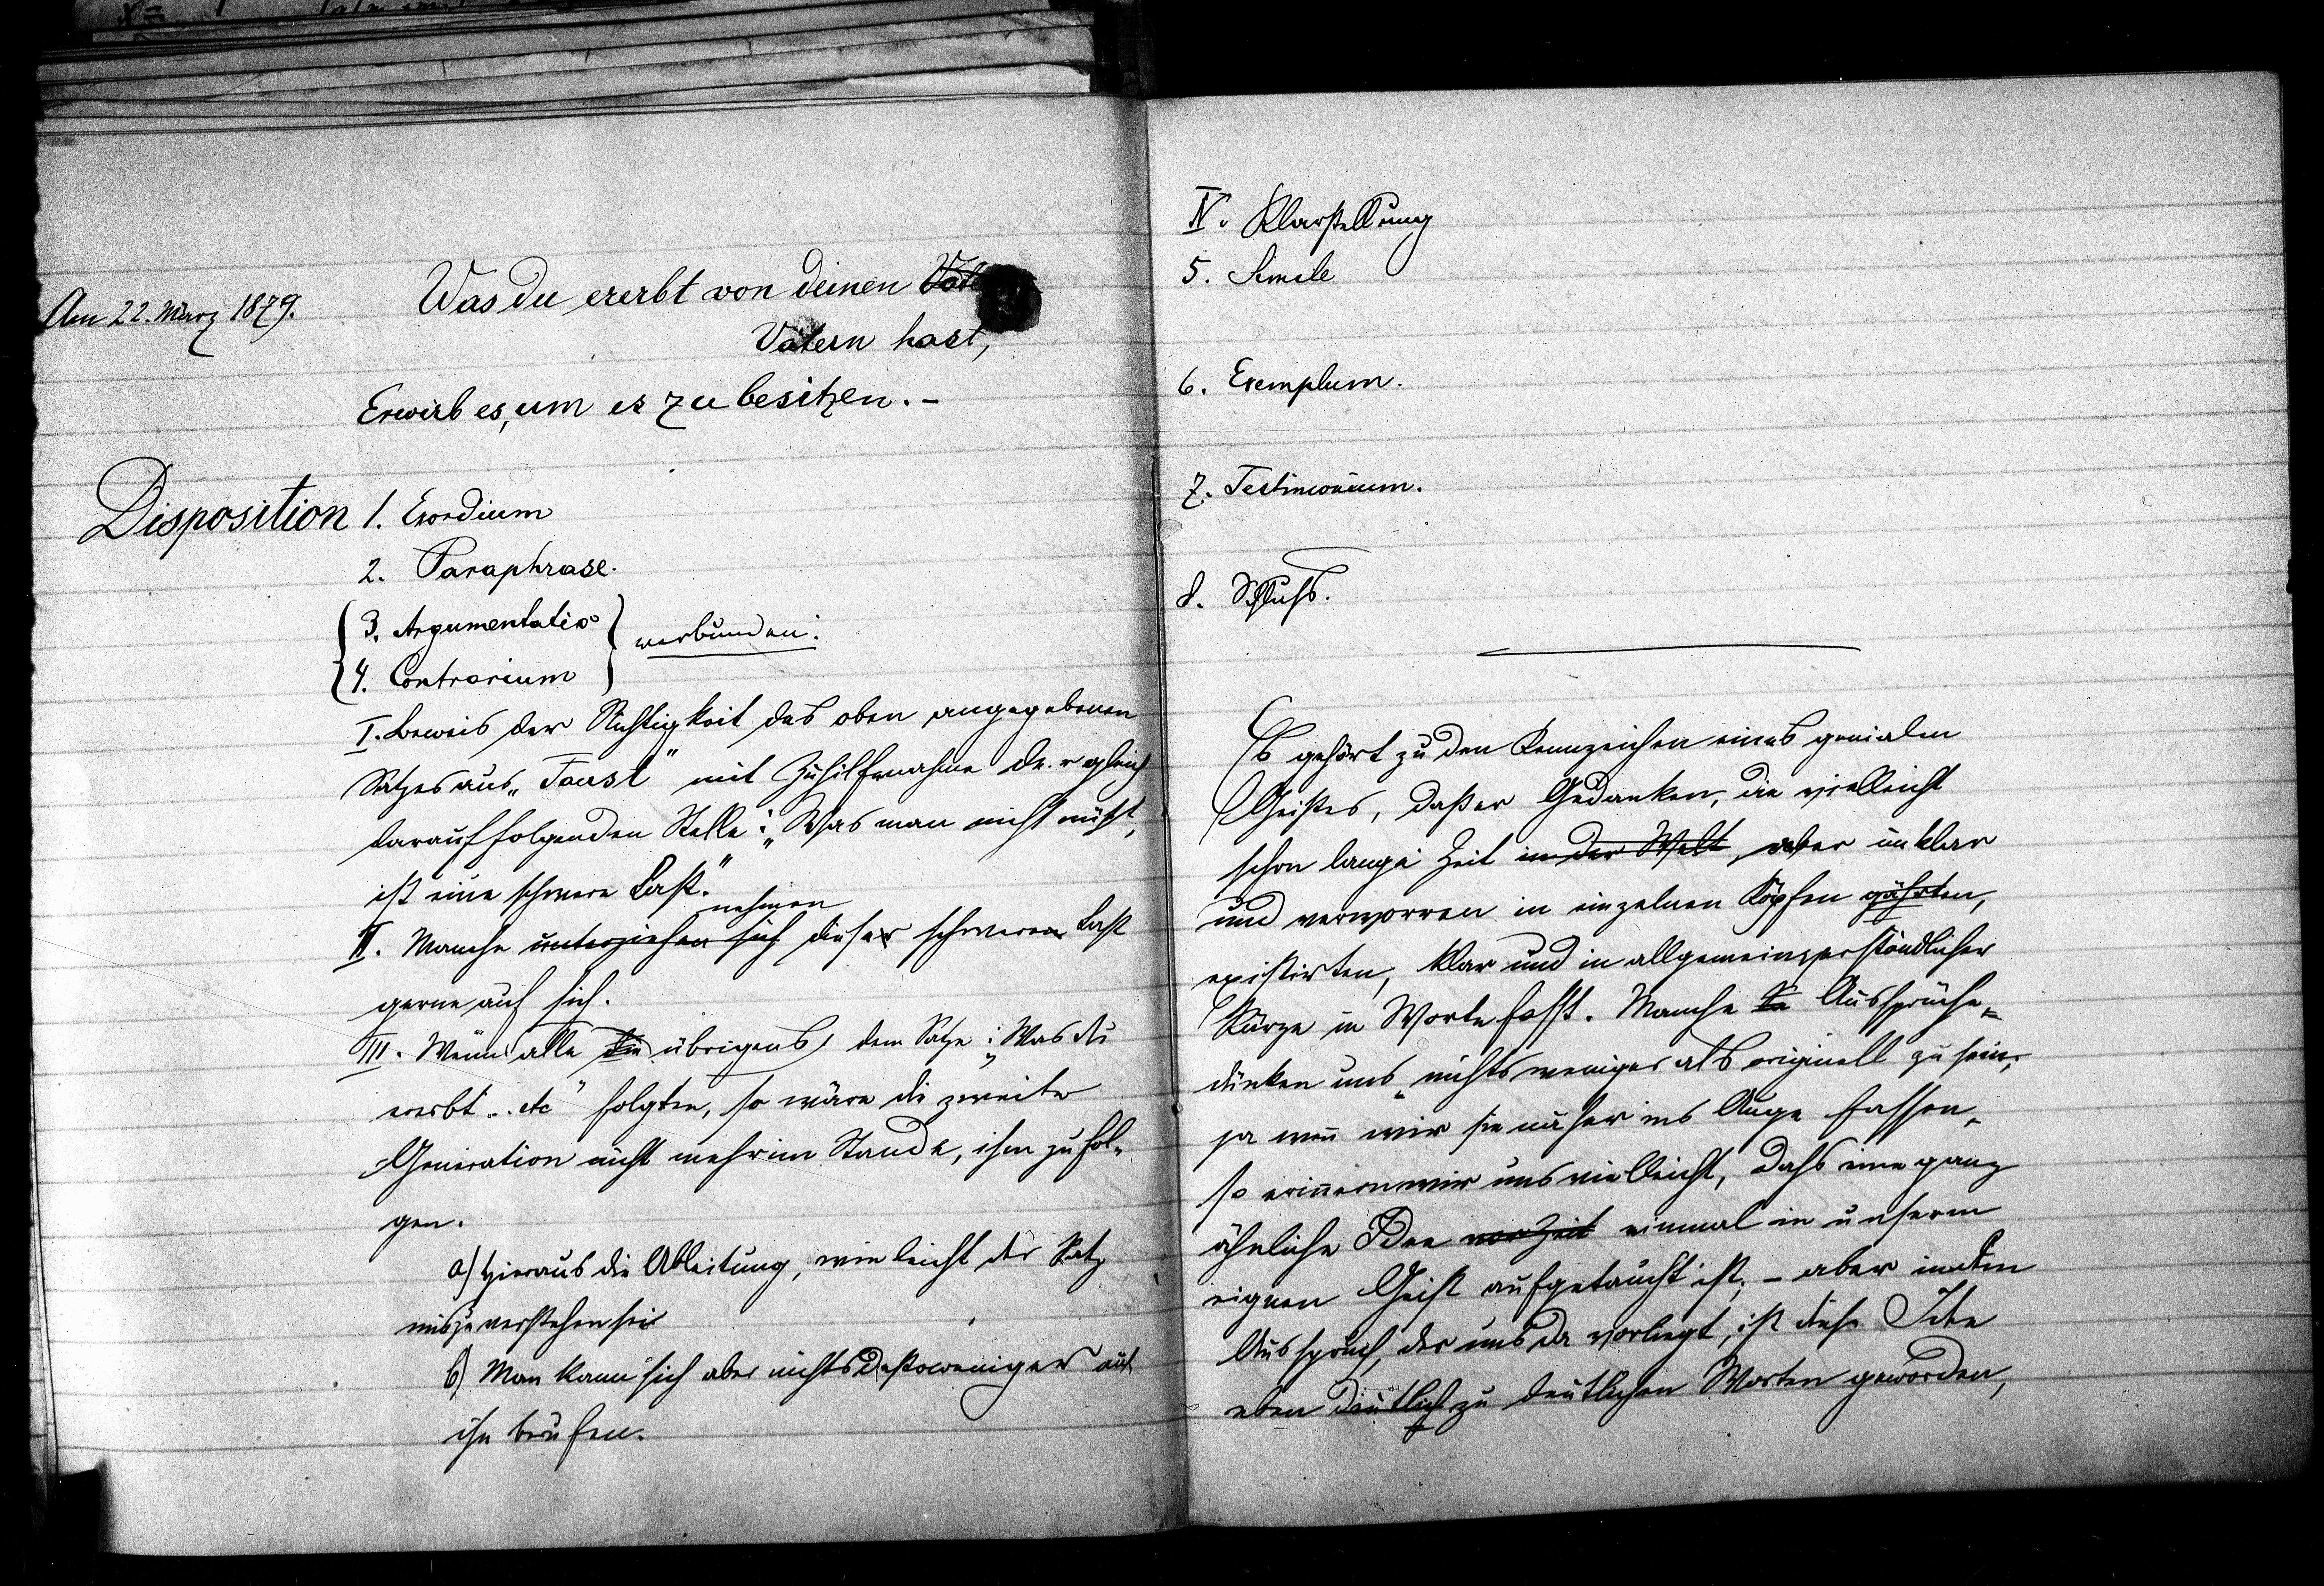 Am 22. März 1879.
Was du ererbt von deinen Väte
Vätern hast,
Erwirb es, um es zu besitzen. –
Disposition 1. Exordium
2. Paraphrase.
3. Argumentatio
verbunden:
4. Contrarium
I. Beweis der Richtigkeit des oben angegebenen
Satzes aus „Faust" mit Zuhilfenahme der gleich
darauffolgenden Stelle: „Was man nicht nützt,
ist eine schwere Last."
nehmen
II. Manche unterziehen sich dieser schweren Last
gerne auf sich.
III. Wenn alle die übrigens dem Satze: „Was du
ererbt .. etc" folgten, so wäre die zweite
Generation nicht mehr im Stande, ihm zu fol-
gen.
a) Hieraus die Ableitung, wie leicht der Satz
miszuverstehen sei
b) Man kann sich aber nichts destoweniger auf
ihn berufen.
IV. Klarstellung
5. Simile
6. Exemplum.
7. Testimonium.
8. Schluß.
Es gehört zu den Kennzeichen eines genialen
Geistes, daß er Gedanken, die vielleicht
schon lange Zeit in der Welt, aber unklar
und verworren in einzelnen Köpfen gährten,
existirten, klar und in allgemeinverständlicher
Kürze in Worte fasst. Manche Aussprüche
dünken uns nichts weniger als originell zu sein,
ja wenn wir sie näher ins Auge fassen,
so erinnern wir uns vielleicht, daß eine ganz
ähnliche Idee vor Zeit einmal in unserm
eignen Geist aufgetaucht ist, – aber in dem
Ausspruch, der uns da vorliegt, ist diese Idee
eben deutlich zu deutlichen Worten geworden,